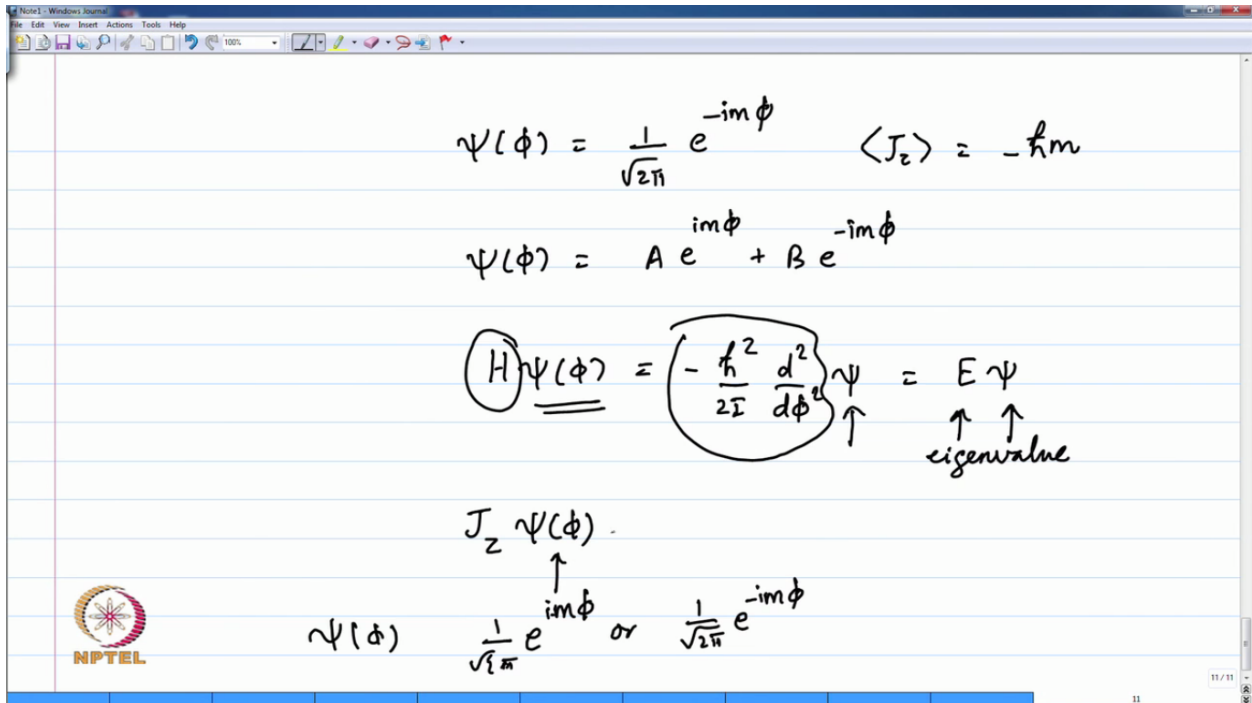 Note1 - Windows Journal
File Edit View Insert Actions Tools Help
100%
ψ(ϕ) = 1/√2π e^{-imϕ} ⟨J_z⟩ = -ℏm
ψ(ϕ) = A e^{imϕ} + B e^{-imϕ}
H ψ(ϕ) = (- ℏ²/2I d²/dϕ²) ψ = E ψ
↑ ↑ ↑
eigenvalue
J_z ψ(ϕ)
↑
ψ(ϕ) 1/√{π e^{imϕ} or 1/√2π e^{-imϕ}
NPTEL
11 / 11
11